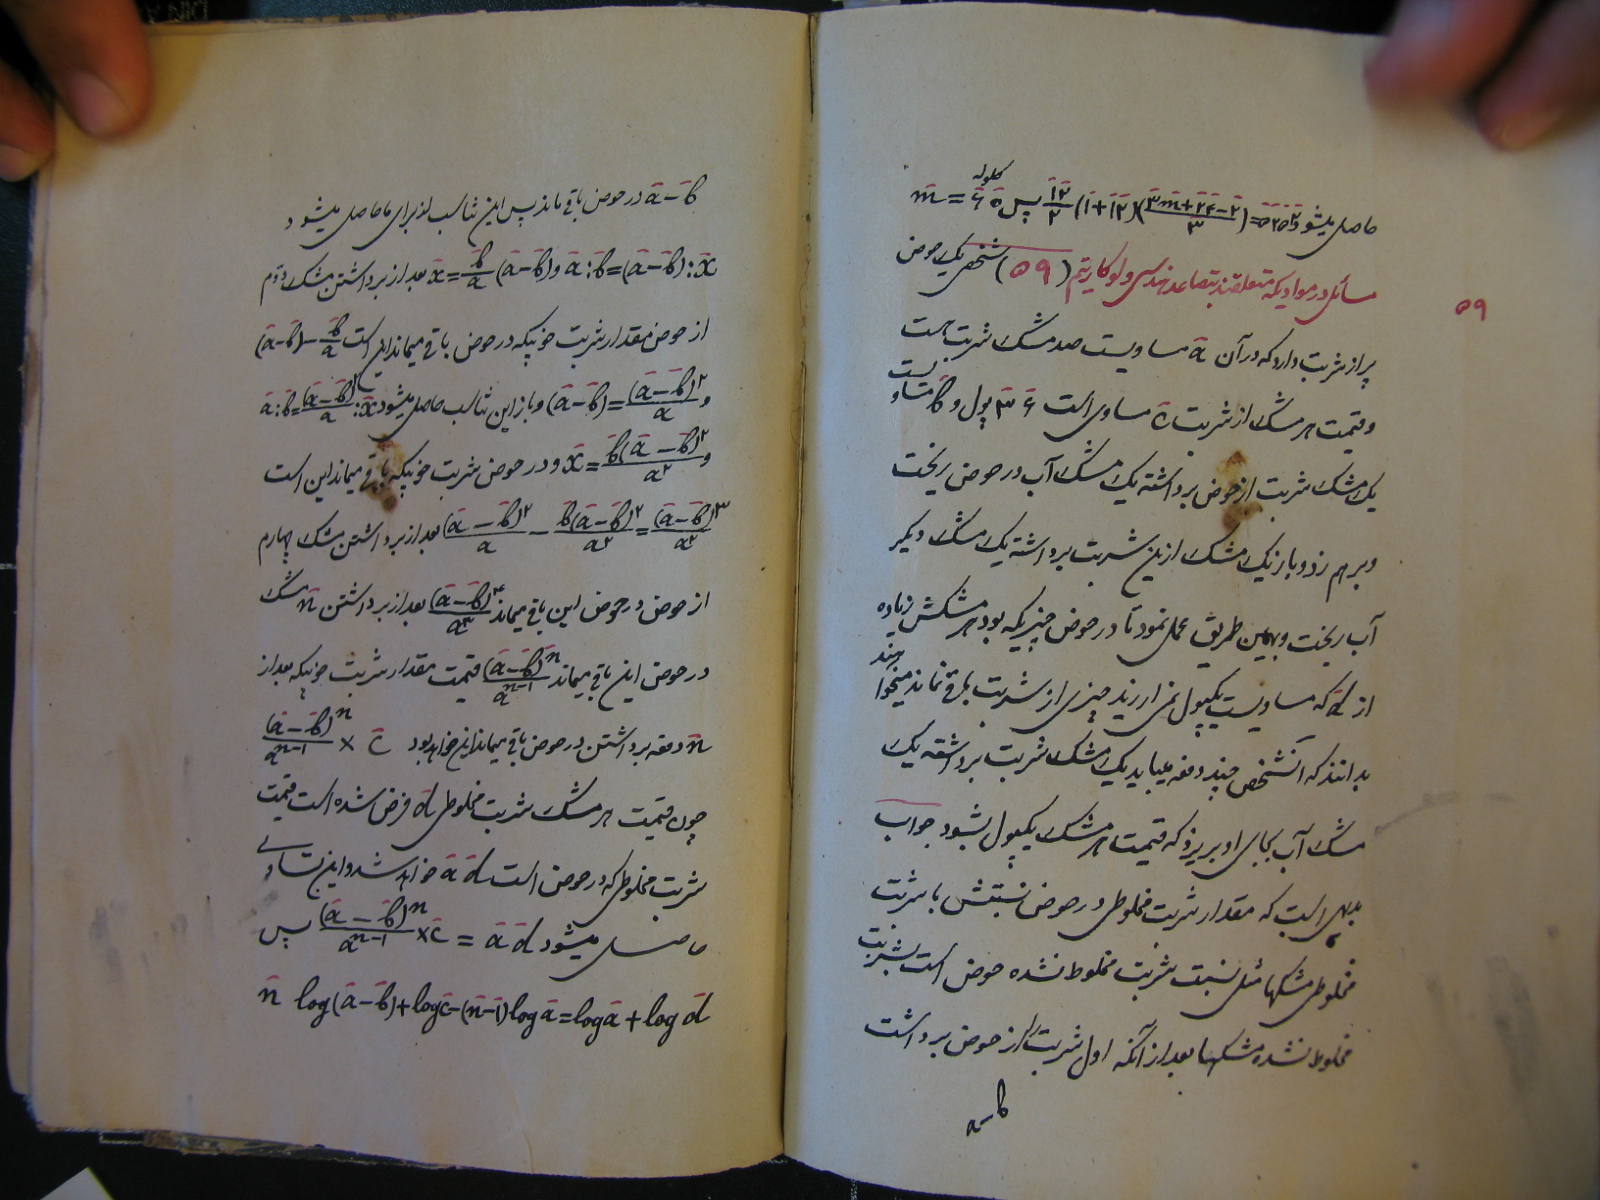 حاصل میشود ۵۲۵۲=(۳m+۲۴-۲/۳)(۱+۱۲)۱۲/۲ پس ۶۵ گلوله = m
مسائل در موادیکه متعلقند بتصاعد هندسی و لوکاریتم (۵۹) شخصی یک حوض
۵۹
پر از شربت دارد که در آن a مساویست صد مشک شربت است
و قیمت هر مشک از شربت c مساوی است ۳۶ پول و
یک مشک شربت از حوض برداشته یک مشک آب در حوض ریخت
و برهم زد و باز یک مشک ازین شربت برداشته یک مشک دیگر
آب ریخت و بهمین طریق عمل نمود تا در حوض چیزیکه بود هر مشکش زیاده
از d که مساویست یکپول نمی ارزید چیزی از شربت باقی نماند میخواهند
بدانند که آنشخص چند دفعه میباید یک مشک شربت برداشته یک
مشک آب بجای او بریزد که قیمت هر مشک یکپول بشود جواب
بدیهی است که مقدار شربت مخلوطی در حوض نسبتش با شربت
مخلوطی مشکها مثل نسبت شربت مخلوط نشده حوض است بشربت
مخلوط نشده مشکها بعد از آنکه اول شربت را از حوض برداشت
a-b
a-b در حوض باقی ماند پس این تناسب از برای ما حاصل میشود
a:b=(a-b):x و x=b/a(a-b) بعد از برداشتن مشک دوم
از حوض مقدار شربت خوبیکه در حوض باقی میماند این است (a-b)-b/a
(a-b)=(a-b)²/a و باز این تناسب حاصل میشود a:b=(a-b)²/a:x
و x=b(a-b)²/a² و در حوض شربت خوبیکه باقی میماند این است
(a-b)²/a - b(a-b)²/a² = (a-b)³/a² بعد از برداشتن مشک چهارم
از حوض در حوض این باقی میماند (a-b)⁴/a³ بعد از برداشتن n مشک
در حوض این باقی میماند (a-b)ⁿ/aⁿ⁻¹ قیمت مقدار شربت خوبیکه بعد از
n دفعه برداشتن در حوض باقی میماند این خواهد بود (a-b)ⁿ/aⁿ⁻¹ × c
چون قیمت هر مشک شربت مخلوطی d فرض شده است قیمت
شربت مخلوطی که در حوض است ad خواهد شد و این تساوی
حاصل میشود (a-b)ⁿ/aⁿ⁻¹ × c = ad پس
n log(a-b)+log c-(n-1)log a=log a + log d